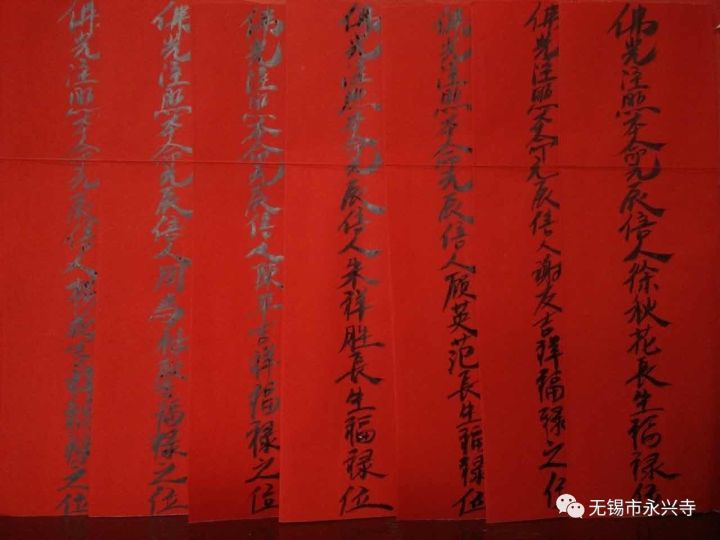 佛光注照本命元辰信人徐秋花長生福禄位
佛光注照本命元辰信人谢友吉祥福禄之位
佛光注照本命元辰信人顾英范長生福禄位
佛光注照本命元辰信人朱祥胜長生福禄位
佛光注照本命元辰信人陈平吉祥福禄之位
佛光注照本命元辰信人周福禄之位
佛光注照本命元辰信人吉祥福禄之位
无锡市永兴寺